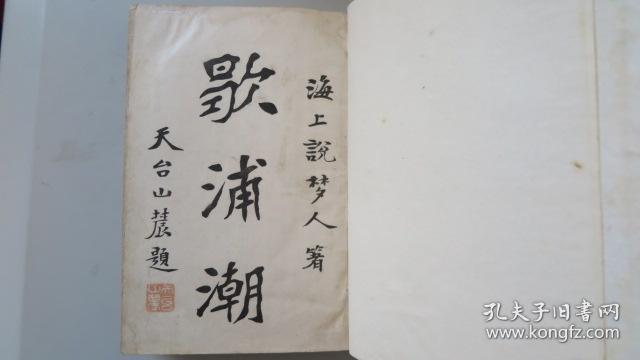 海上說梦人箸
歇浦潮
天台山農題
孔夫子旧书网
www.kongfz.com